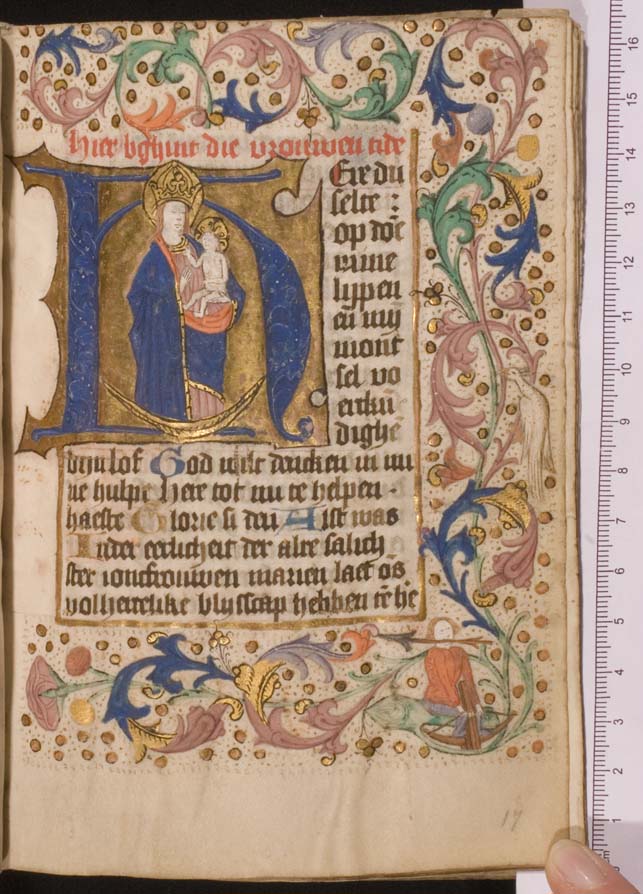 Hier bghint die vrouwen tide
HEre du
selte :
op doē
mine
lyppen
eñ mij
mont
sel vo
ercku
dighe
dijn lof God wilt dencken in mi
ne hulpe Here tot mi te helpen .
haeste Glorie si den Alst was
Inder eerlicheit der alre salich
ster ioncfrouwen marien laet os
blysscap hebben
17
16
15
14
13
12
11
10
9
8
7
6
5
4
3
2
1